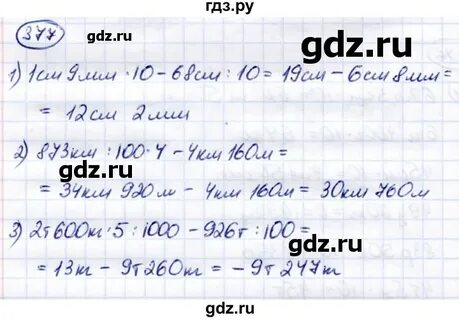 гдз.ру
377
1) 1см 9мм · 10 - 68см : 10 = 19см - 6см 8мм =
= 12см 2мм
2) 873км : 100 · 4 - 4км 160м =
= 34км 920м - 4км 160м = 30км 760м
3) 2т 600кг · 5 : 1000 - 926т : 100 =
= 13кг - 9т 260кг = - 9т 247кг
gdz.ru
gdz.ru
gdz.ru
gdz.ru
гдз.ру